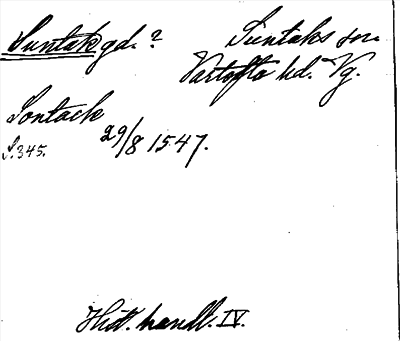 Suntak gd. ?
Suntaks sn.
Vartofta hd. Vg.
Sontack
S. 345.
29/8 1547.
Hist. handl. IV.